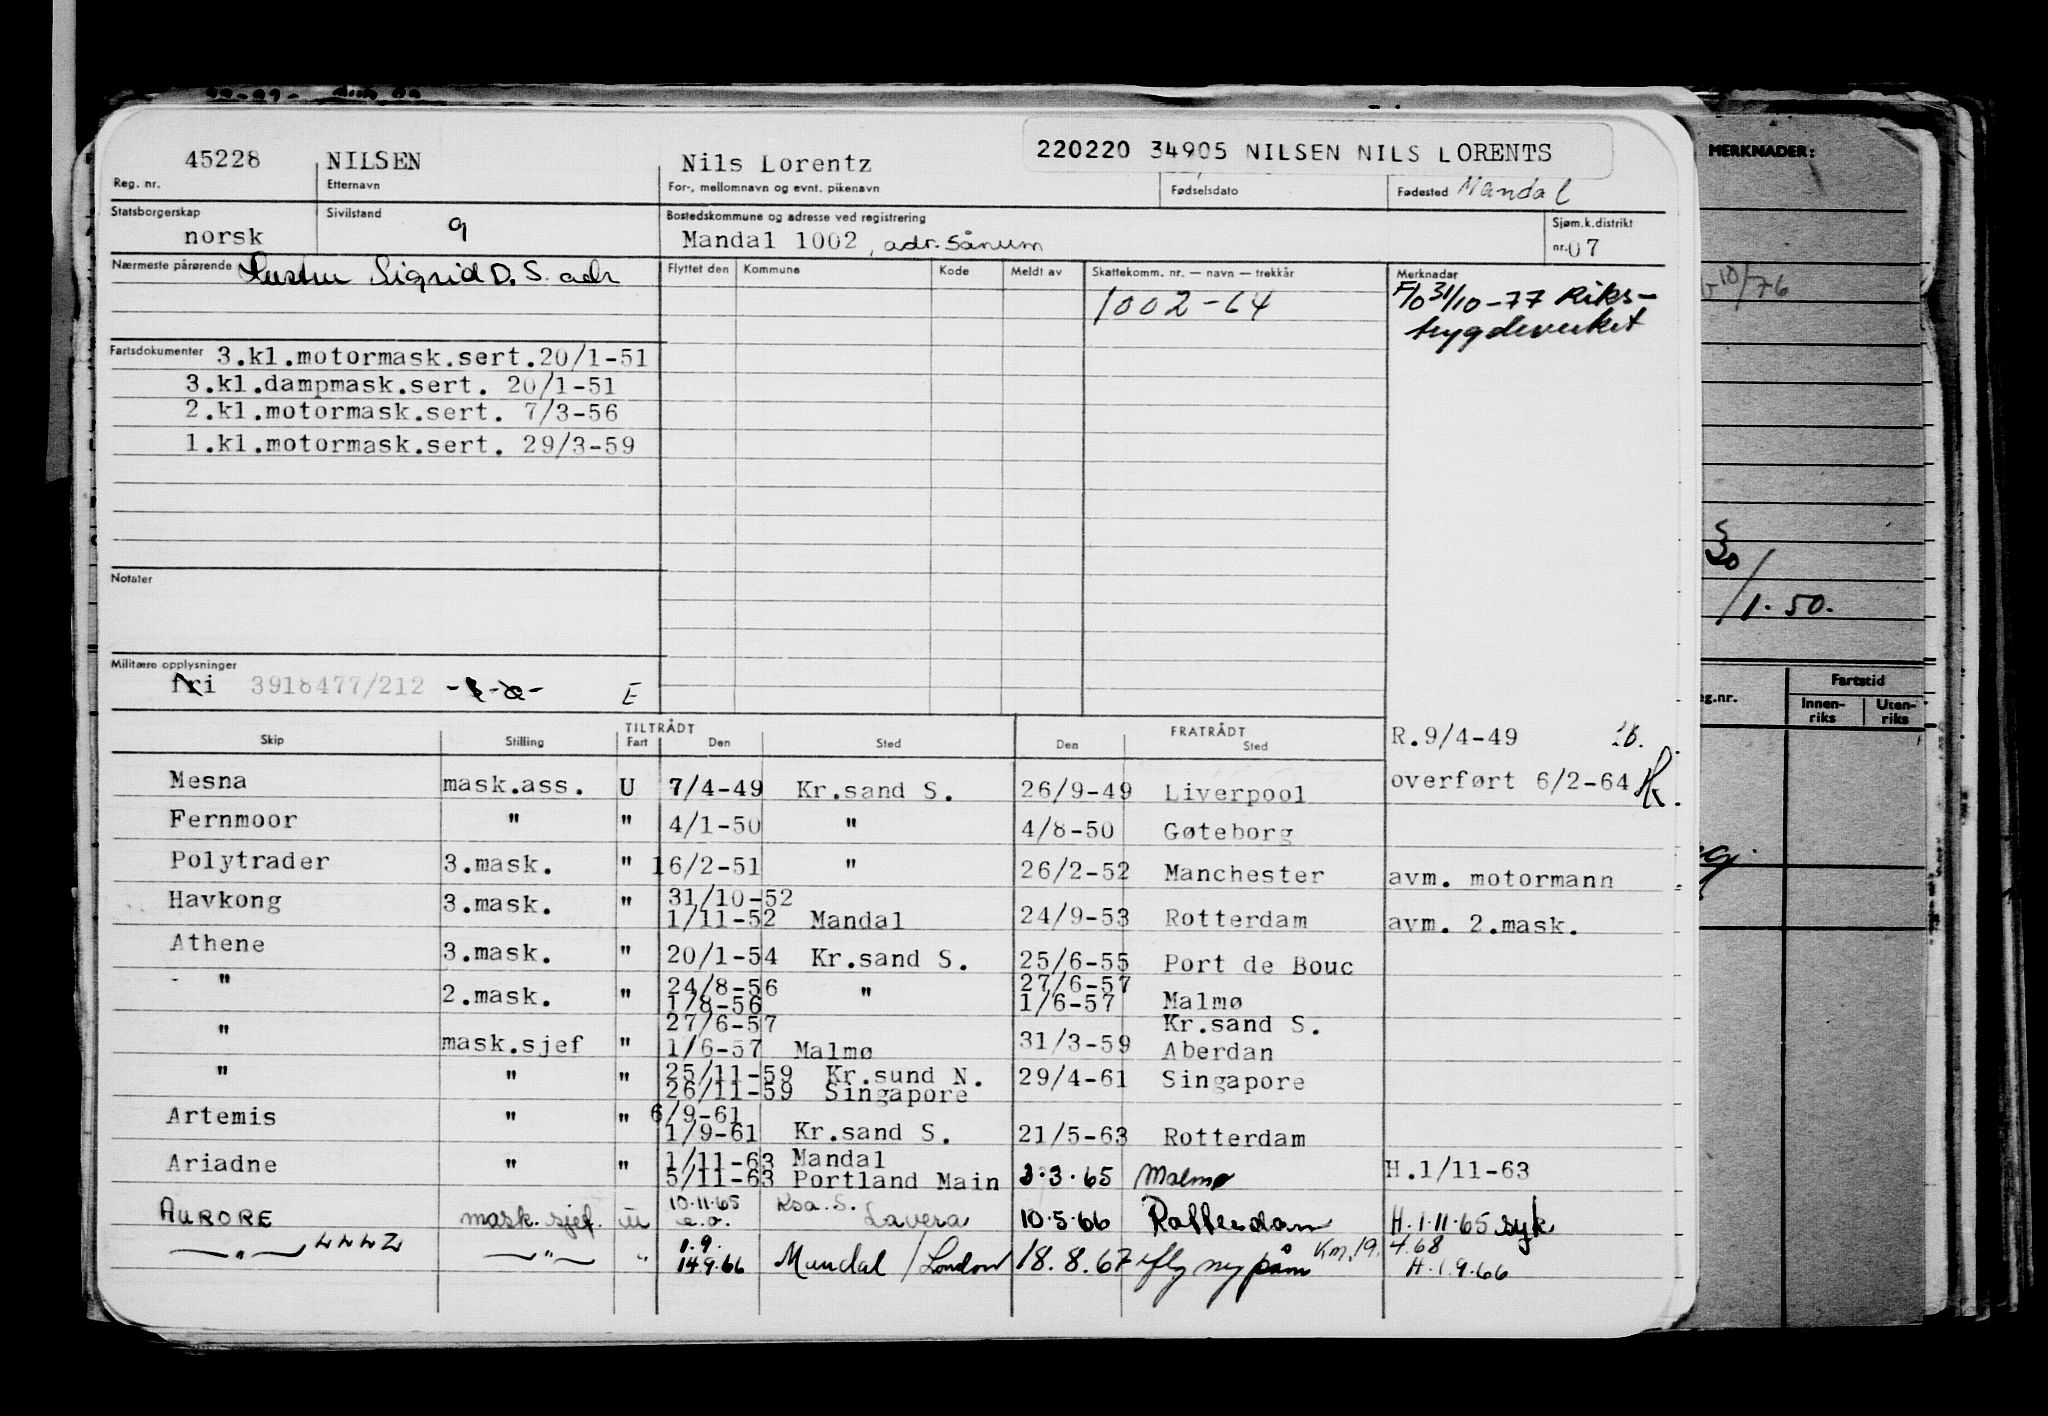 45228 NILSEN Nils Lorentz 220220 34905 NILSEN NILS LORENTS
Reg. nr. Etternavn For-, mellomnavn og evnt. pikenavn Fødselsdato Fødested Mandal
MERKNADER:
Statsborgerskap Sivilstand Bostedskommune og adresse ved registrering Sjøm.k.distrikt
norsk g Mandal 1002, adr. Sånum nr. 07
Nærmeste pårørende Hustru Sigrid D. S. adr Flyttet den Kommune Kode Meldt av Skattekomm. nr. — navn — trekkår Merknader
1002-64 F/o 31/10-77 Riks-
trygdeverket
10/76
Fartsdokumenter 3.kl.motormask.sert.20/1-51
3.kl.dampmask.sert. 20/1-51
2.kl.motormask.sert. 7/3-56
1.kl.motormask.sert. 29/3-59
Notater
30/1.50.
Militære opplysninger
fri 3918477/212 E
Skip Stilling TILTRÅDT Fart Den Sted FRATRÅDT Den Sted R.9/4-49
Mesna mask.ass. U 7/4-49 Kr.sand S. 26/9-49 Liverpool overført 6/2-64
Fernmoor " " 4/1-50 " 4/8-50 Gøteborg
Polytrader 3.mask. " 16/2-51 " 26/2-52 Manchester avm. motormann
Havkong 3.mask. " 31/10-52
1/11-52 Mandal 24/9-53 Rotterdam avm. 2.mask.
Athene 3.mask. " 20/1-54 Kr.sand S. 25/6-55 Port de Bouc
" 2.mask. " 24/8-56 " 27/6-57
1/8-56 1/6-57 Malmø
" 27/6-57 Kr.sand S.
mask.sjef " 1/6-57 Malmø 31/3-59 Aberdan
" " " 25/11-59 Kr.sund N. 29/4-61 Singapore
26/11-59 Singapore
Artemis " " 6/9-61
1/9-61 Kr.sand S. 21/5-63 Rotterdam
Ariadne " " 1/11-63 Mandal H.1/11-63
5/11-63 Portland Main 3.3.65 Malmø
AURORE mask.sjef. u 10.11.65 Ksa. S.
e.o. Lavera 10.5.66 Rotterdam H.1.11.65 syk
—"— LLLZ —"— " 1.9. Km. 19.4.68
14.9.66 Mandal / London 18.8.67 efly ny påm H.1.9.66
Fartstid
Innen-
riks
Uten-
riks